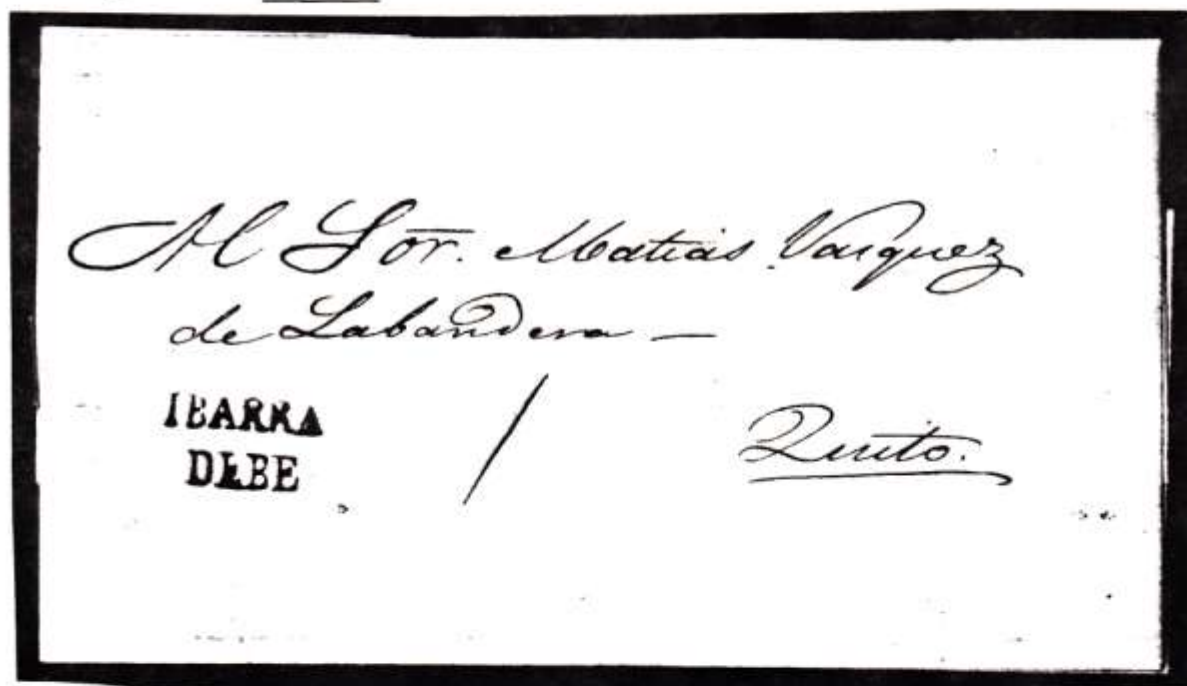 Al Sor. Matias Vasquez
de Labandera —
IBARRA
DEBE
/
Quito.